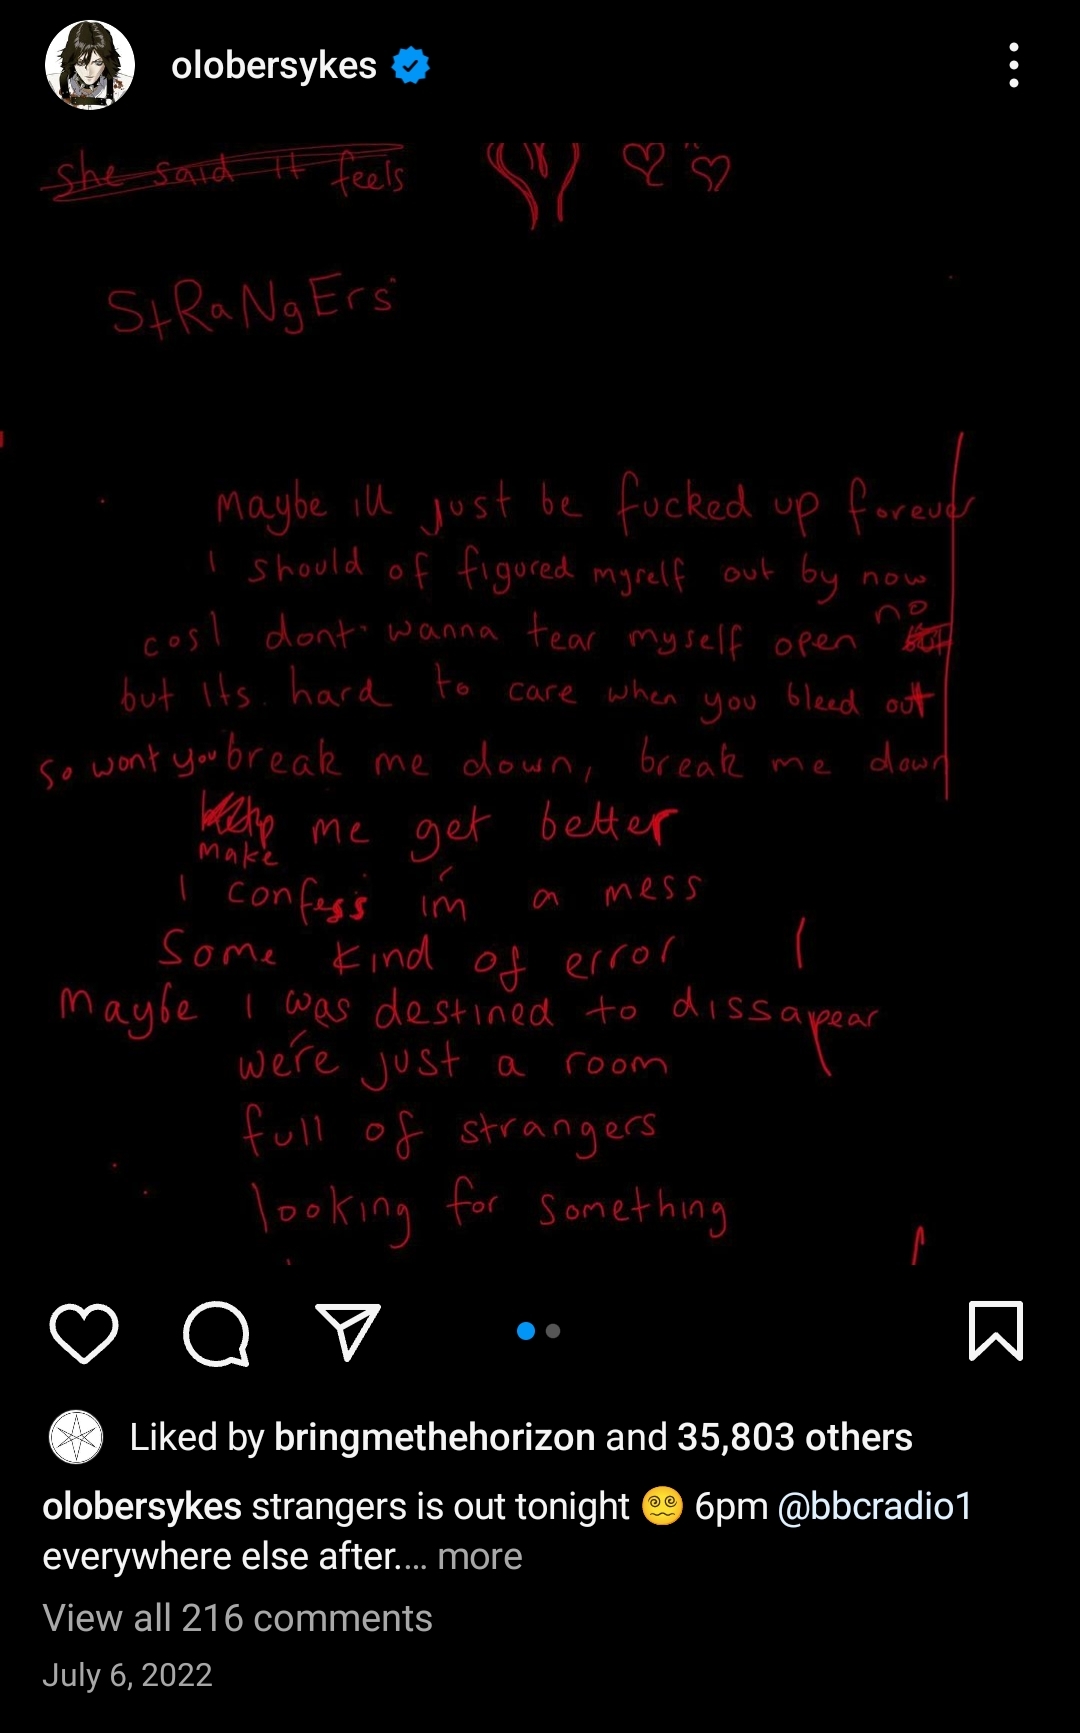 olobersykes
she said it feels
StRaNgErs
Maybe ill just be fucked up forever
I should of figured myself out by now
no
cos I dont wanna tear myself open but
but its hard to care when you bleed out
so wont you break me down, break me down
Help me get better
make
I confess i'm a mess
Some kind of error
Maybe I was destined to dissapear
we're just a room
full of strangers
looking for something
Liked by bringmethehorizon and 35,803 others
olobersykes strangers is out tonight 😵‍💫 6pm @bbcradio1
everywhere else after.... more
View all 216 comments
July 6, 2022